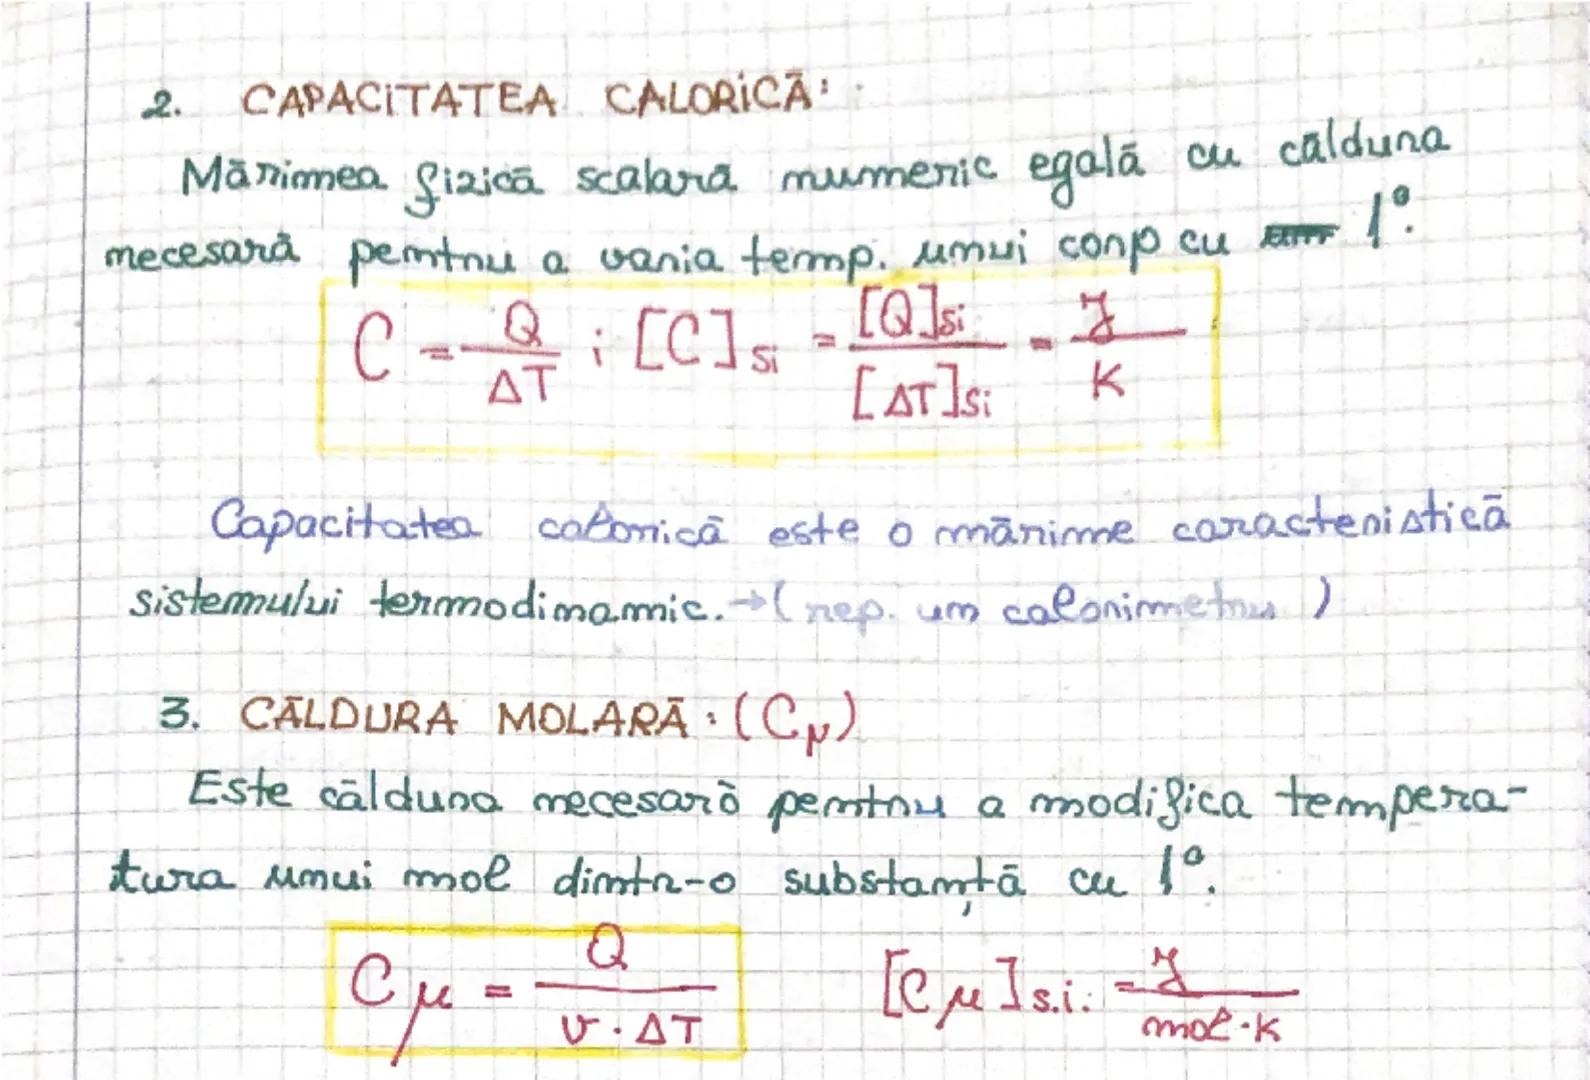 2. CAPACITATEA CALORICĂ:
Mărimea fizică scalară numeric egală cu căldura
necesară pentru a varia temp. unui corp cu 1°.
C = Q/ΔT ; [C]si = [Q]si/[ΔT]si = J/K
Capacitatea calorică este o mărime caracteristică
sistemului termodinamic. → (rep. un calorimetru)
3. CĂLDURA MOLARĂ: (Cμ)
Este căldura necesară pentru a modifica tempera-
tura unui mol dintr-o substanță cu 1°.
Cμ = Q/ν·ΔT [Cμ]s.i. = J/mol·K